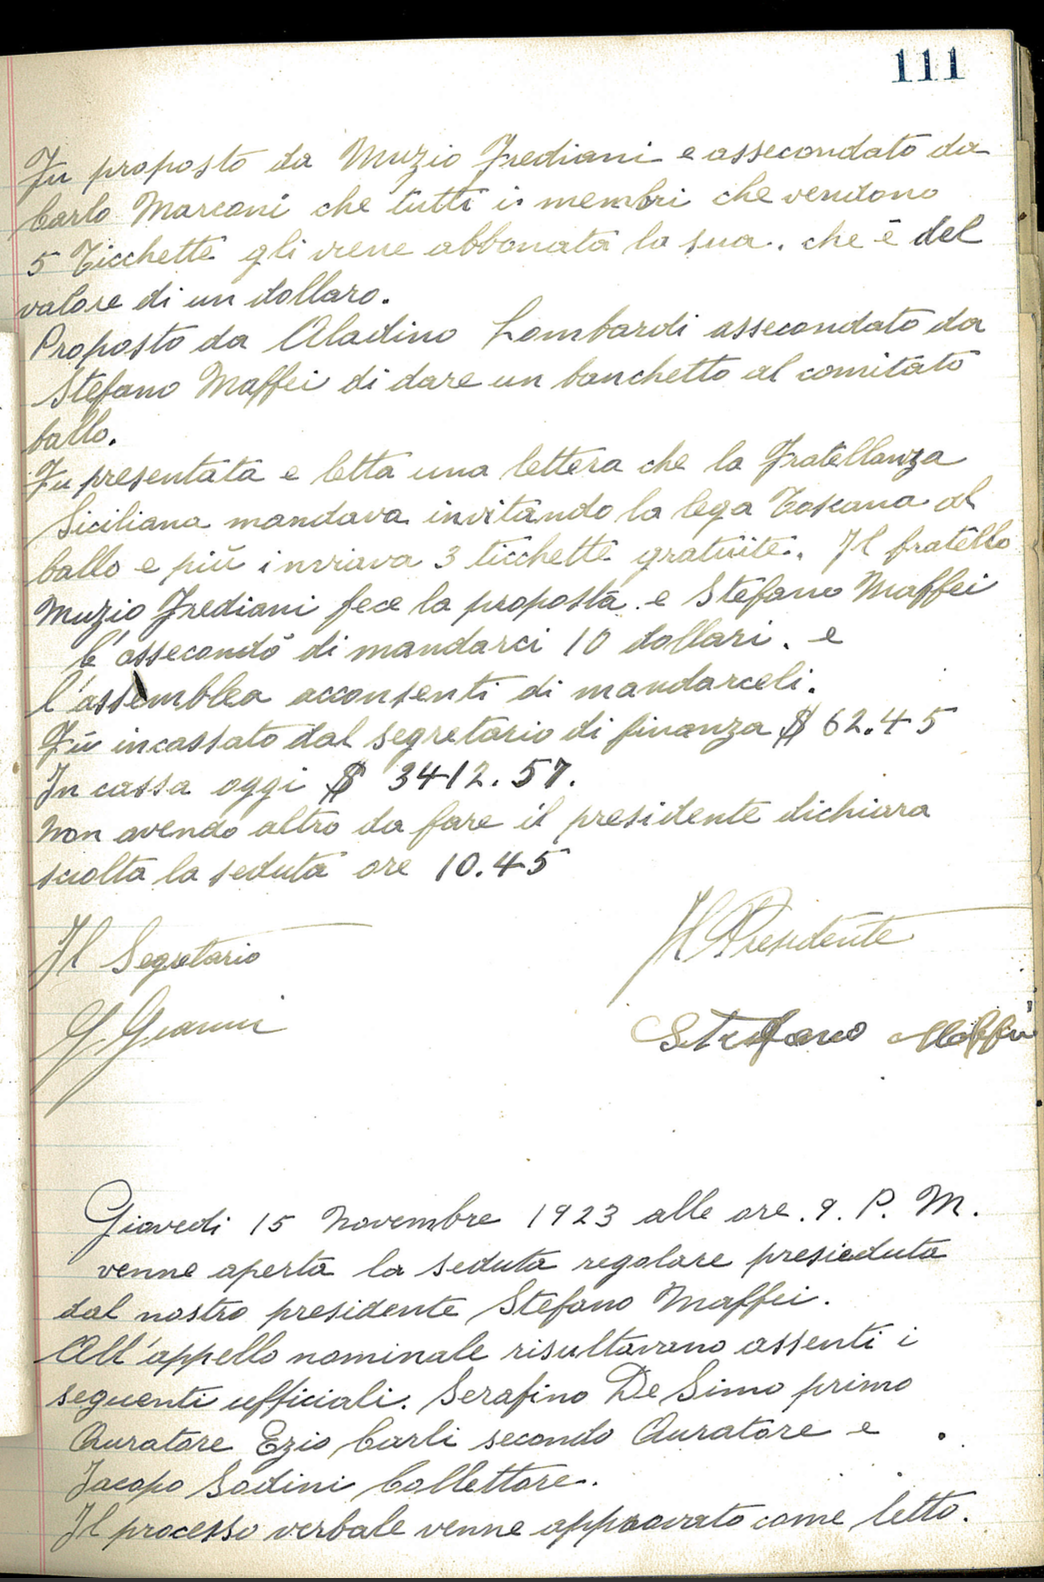 111
Fu proposto da Muzio Frediani e assecondato da
Carlo Marconi che tutti i membri che vendono
5 Ticchette gli viene abbonata la sua. che è del
valore di un dollaro.
Proposto da Aladino Lombardi assecondato da
Stefano Maffei di dare un banchetto al comitato
ballo.
Fu presentata e letta una lettera che la Fratellanza
Siciliana mandava invitando la lega Toscana al
ballo e più inviava 3 ticchette gratuite. Il fratello
Muzio Frediani fece la proposta e Stefano Maffei
l'assecondò di mandarci 10 dollari. e
l'assemblea acconsenti di mandarceli.
Fù incassato dal segretario di finanza $ 62.45
In cassa oggi $ 3412.57.
Non avendo altro da fare il presidente dichiara
sciolta la seduta ore 10.45
Il Segretario
Il Presidente
G. Gianni
Stefano Maffei
Giovedi 15 Novembre 1923 alle ore. 9. P. M.
venne aperta la seduta regolare presieduta
dal nostro presidente Stefano Maffei.
All'appello nominale risultavano assenti i
seguenti ufficiali. Serafino De Simo primo
Curatore Ezio Carli secondo Curatore e
Jacopo Sodini Collettore.
Il processo verbale venne approvato come letto.